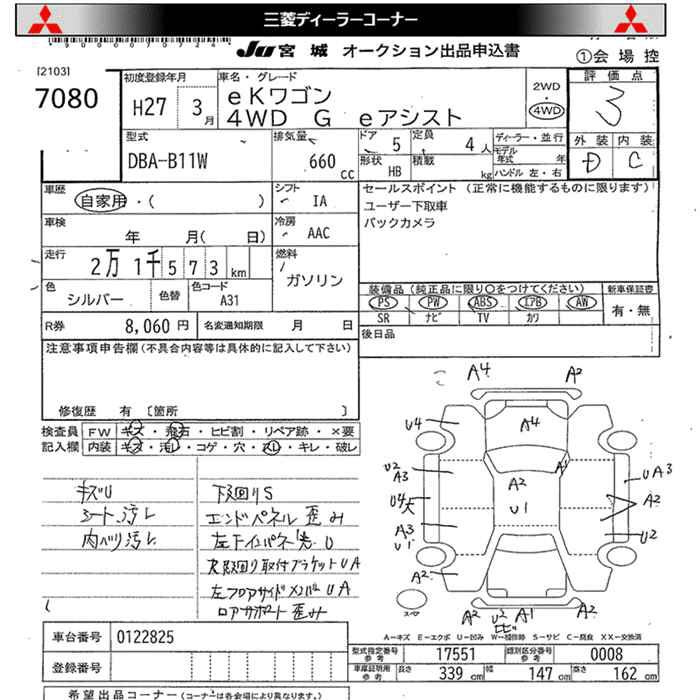 三菱ディーラーコーナー
JU 宮城 オークション出品申込書
①会場控
[2103]
7080
初度登録年月
H27 3月
車名・グレード
eKワゴン
4WD G eアシスト
2WD
・
4WD
評価点
3
型式
DBA-B11W
排気量
660 cc
ドア 5
定員 4人
形状 HB
積載 kg
ディーラー・並行
モデル年式 年
ハンドル 左・右
外装 内装
D C
車歴
自家用・( )
シフト
IA
車検
年 月( 日)
冷房
AAC
走行
2万1千573km
燃料
ガソリン
色
シルバー
色替
色コード
A31
R券 8,060円
名変通知期限 月 日
セールスポイント (正常に機能するものに限ります)
ユーザー下取車
バックカメラ
装備品 (純正品に限り○をつけてください)
新車保証書
PS PW ABS エアB AW
SR ナビ TV カワ
有・無
後日品
注意事項申告欄 (不具合内容等は具体的に記入して下さい)
修復歴 有 〔箇所 〕
検査員 FW キズ・飛石・ヒビ割・リペア跡・×要
記入欄 内装 キズ・汚レ・コゲ・穴・スレ・キレ・破レ
キズU
シート汚レ
内ベリ汚レ
下廻りS
エンドパネル歪み
左フロアサイドメンバーUA
ロアサポート歪み
A4 A2
U4 A4
U2 A3 A1 UA3
A2
U4大 U1 A2
A3 U1 U2
A2 A2
スペア
A2 A1 A2
A=キズ E=エクボ U=凹み W=補修跡 S=サビ C=腐食 XX=交換済
車台番号 0122825
登録番号
型式指定番号 参考 17551
類別区分番号 参考 0008
車庫証明用 参考
長さ 339 cm
幅 147 cm
高さ 162 cm
希望出品コーナー (コーナーは各会場により異なります。)